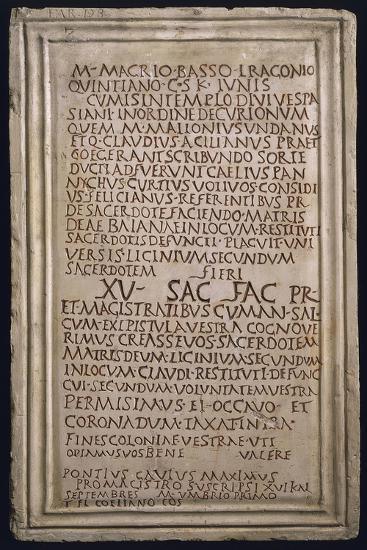 M MACRIO BASSO L RAGONIO
QUINTIANO COS K IUNIS
CUMIS IN TEMPLO DIVI VESPA
SIANI IN ORDINE DECURIONUM
QUEM M MALLONIUS UNDANUS
ET Q CLAUDIUS ACILIANUS PRAET
COEGERANT SCRIBUNDO SORTE
DUCTI ADFUERUNT CAELIUS PAN
NYCHUS CURTIUS VOTIVOS CONSIDI
US FELICIANUS REFERENTIBUS PR
DE SACERDOTE FACIENDO MATRIS
DEAE BAIANAE IN LOCUM RESTITUTI
SACERDOTIS DEFUNCTI PLACUIT UNI
VERSIS LICINIUM SECUNDUM
SACERDOTEM FIERI
XV SAC FAC PR
ET MAGISTRATIBUS CUMAN SAL
CUM EX EPISTULA VESTRA COGNOVE
RIMUS CREASSE VOS SACERDOTEM
MATRIS DEUM LICINIUM SECUNDUM
IN LOCUM CLAUDI RESTITUTI DEFUNC
SECUNDUM VOLUNTATEM VESTRA
PERMISIMUS EI OCCAVO ET
CORONA DUM TAXAT INTRA
FINES COLONIAE VESTRAE UTI
OPTAMUS VOS BENE VALERE
PONTIUS GAVIUS MAXIMUS
PROMAGISTRO SUSCRIPSI XVI KAL
SEPTEMBRES M UMBRIO PRIMO
T FL COELIANO COS